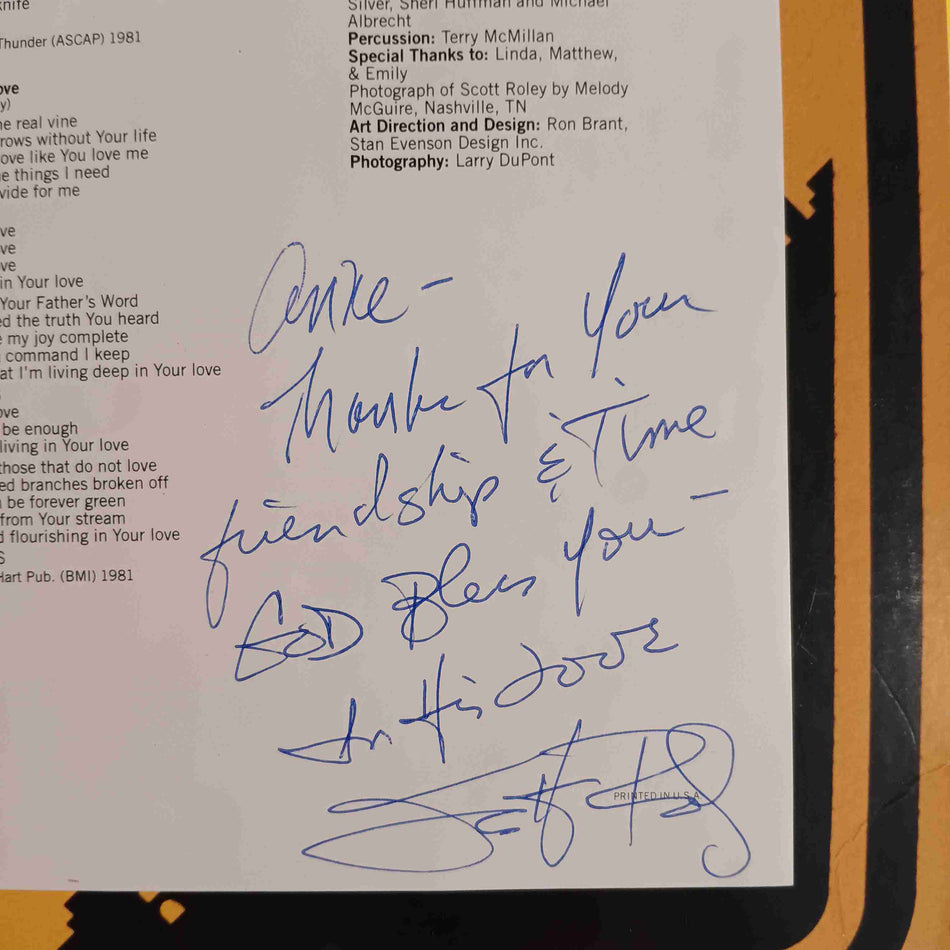 knife
Thunder (ASCAP) 1981
ove
y)
e real vine
rows without Your life
ove like You love me
e things I need
vide for me
ve
ve
ve
in Your love
Your Father's Word
ed the truth You heard
e my joy complete
command I keep
at I'm living deep in Your love
s
ove
be enough
living in Your love
those that do not love
ed branches broken off
be forever green
from Your stream
d flourishing in Your love
S
Hart Pub. (BMI) 1981
Silver, Sheri Huffman and Michael
Albrecht
Percussion: Terry McMillan
Special Thanks to: Linda, Matthew,
& Emily
Photograph of Scott Roley by Melody
McGuire, Nashville, TN
Art Direction and Design: Ron Brant,
Stan Evenson Design Inc.
Photography: Larry DuPont
Anke -
Thanks for Your
friendship & Time
GOD Bless You -
In His Love
Scott Roley
PRINTED IN U.S.A.